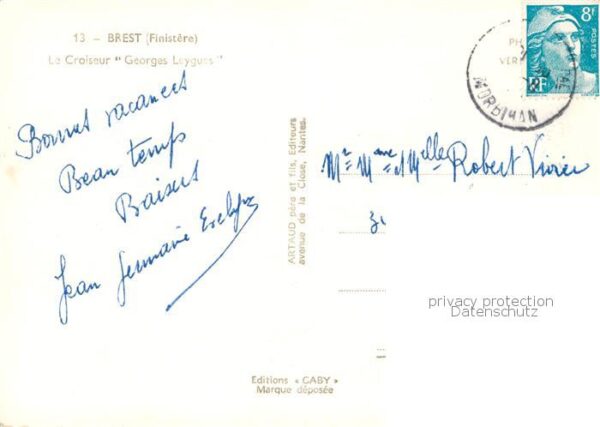 13. — BREST (Finistère)
Le Croiseur "Georges Leygues"
Bonnes vacances
Beau temps
Baisers
Jean Germaine Evelyne
ARTAUD père et fils, Editeurs
avenue de la Close, Nantes.
Editions « GABY »
Marque déposée
8f
POSTES
RF
MORBIHAN
Mr Mme et Melle Robert Vivier
privacy protection
Datenschutz